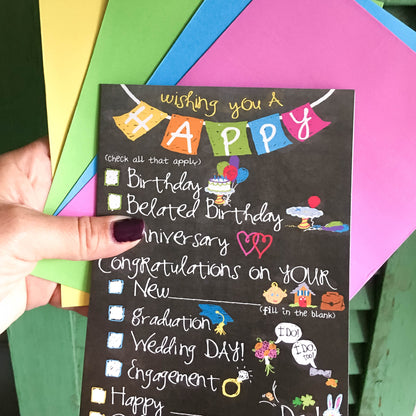 wishing you A
HAPPY
(check all that apply)
Birthday
Belated Birthday
Anniversary
Congratulations on YOUR
New
(fill in the blank)
graduation
Wedding DAY!
I DO!
I DO, too!
Engagement
Happy